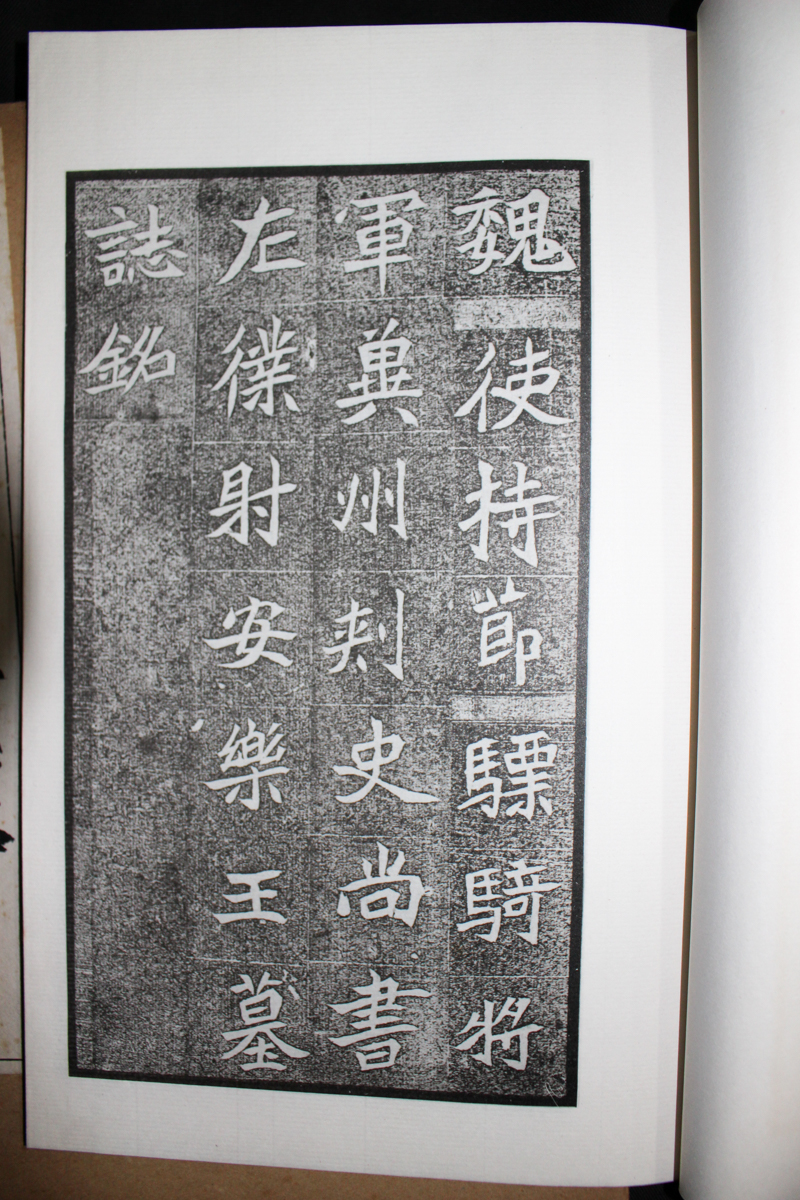 魏使持節驃騎將
軍冀州刾史尚書
左僕射安樂王墓
誌銘